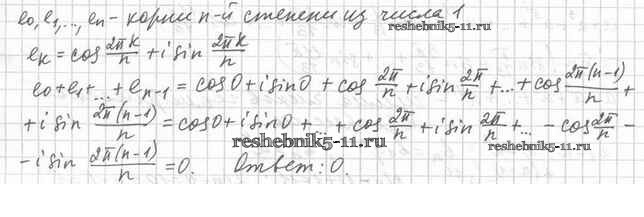 e₀, e₁, ..., eₙ - корни n-й степени из числа 1
reshebnik5-11.ru
eₖ = cos 2πk/n + i sin 2πk/n
e₀ + e₁ + ... + eₙ₋₁ = cos0 + i sin0 + cos 2π/n + i sin 2π/n + ... + cos 2π(n-1)/n +
+ i sin 2π(n-1)/n = cos0 + i sin0 + ... + cos 2π/n + i sin 2π/n + ... - cos 2π/n -
- i sin 2π(n-1)/n = 0. Ответ: 0.
reshebnik5-11.ru